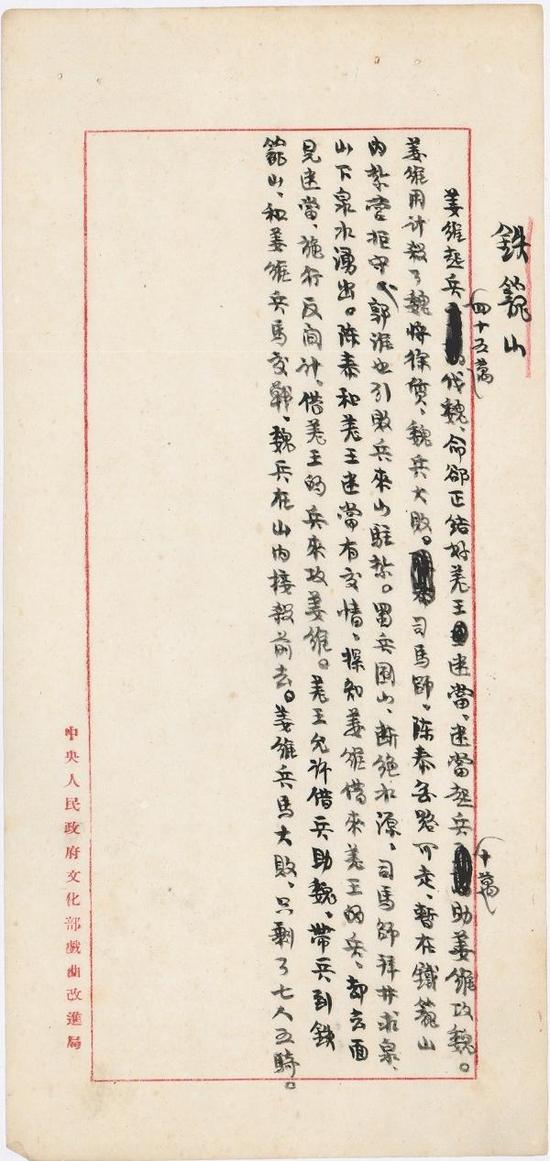 鉄籠山
姜維起兵四十五萬伐魏、命郤正結好羌王迷當、迷當起兵十萬助姜維攻魏。
姜維用计殺了魏将徐質、魏兵大敗。司馬師、陳泰無路可走、暫在鐵籠山
内紥营拒守、郭淮也引敗兵來山駐紥。蜀兵囲山、断绝水源、司馬師拜井求泉、
山下泉水湧出。陈泰和羌王迷當有交情、探知姜維借來羌王的兵、却去面
見迷當、施行反间计。借羌王的兵來攻姜維。羌王允许借兵助魏、帶兵到鉄
籠山、和姜維兵馬交戰、魏兵在山内接殺前去。姜維兵馬大敗、只剩了七人五騎。
中央人民政府文化部戲曲改進局